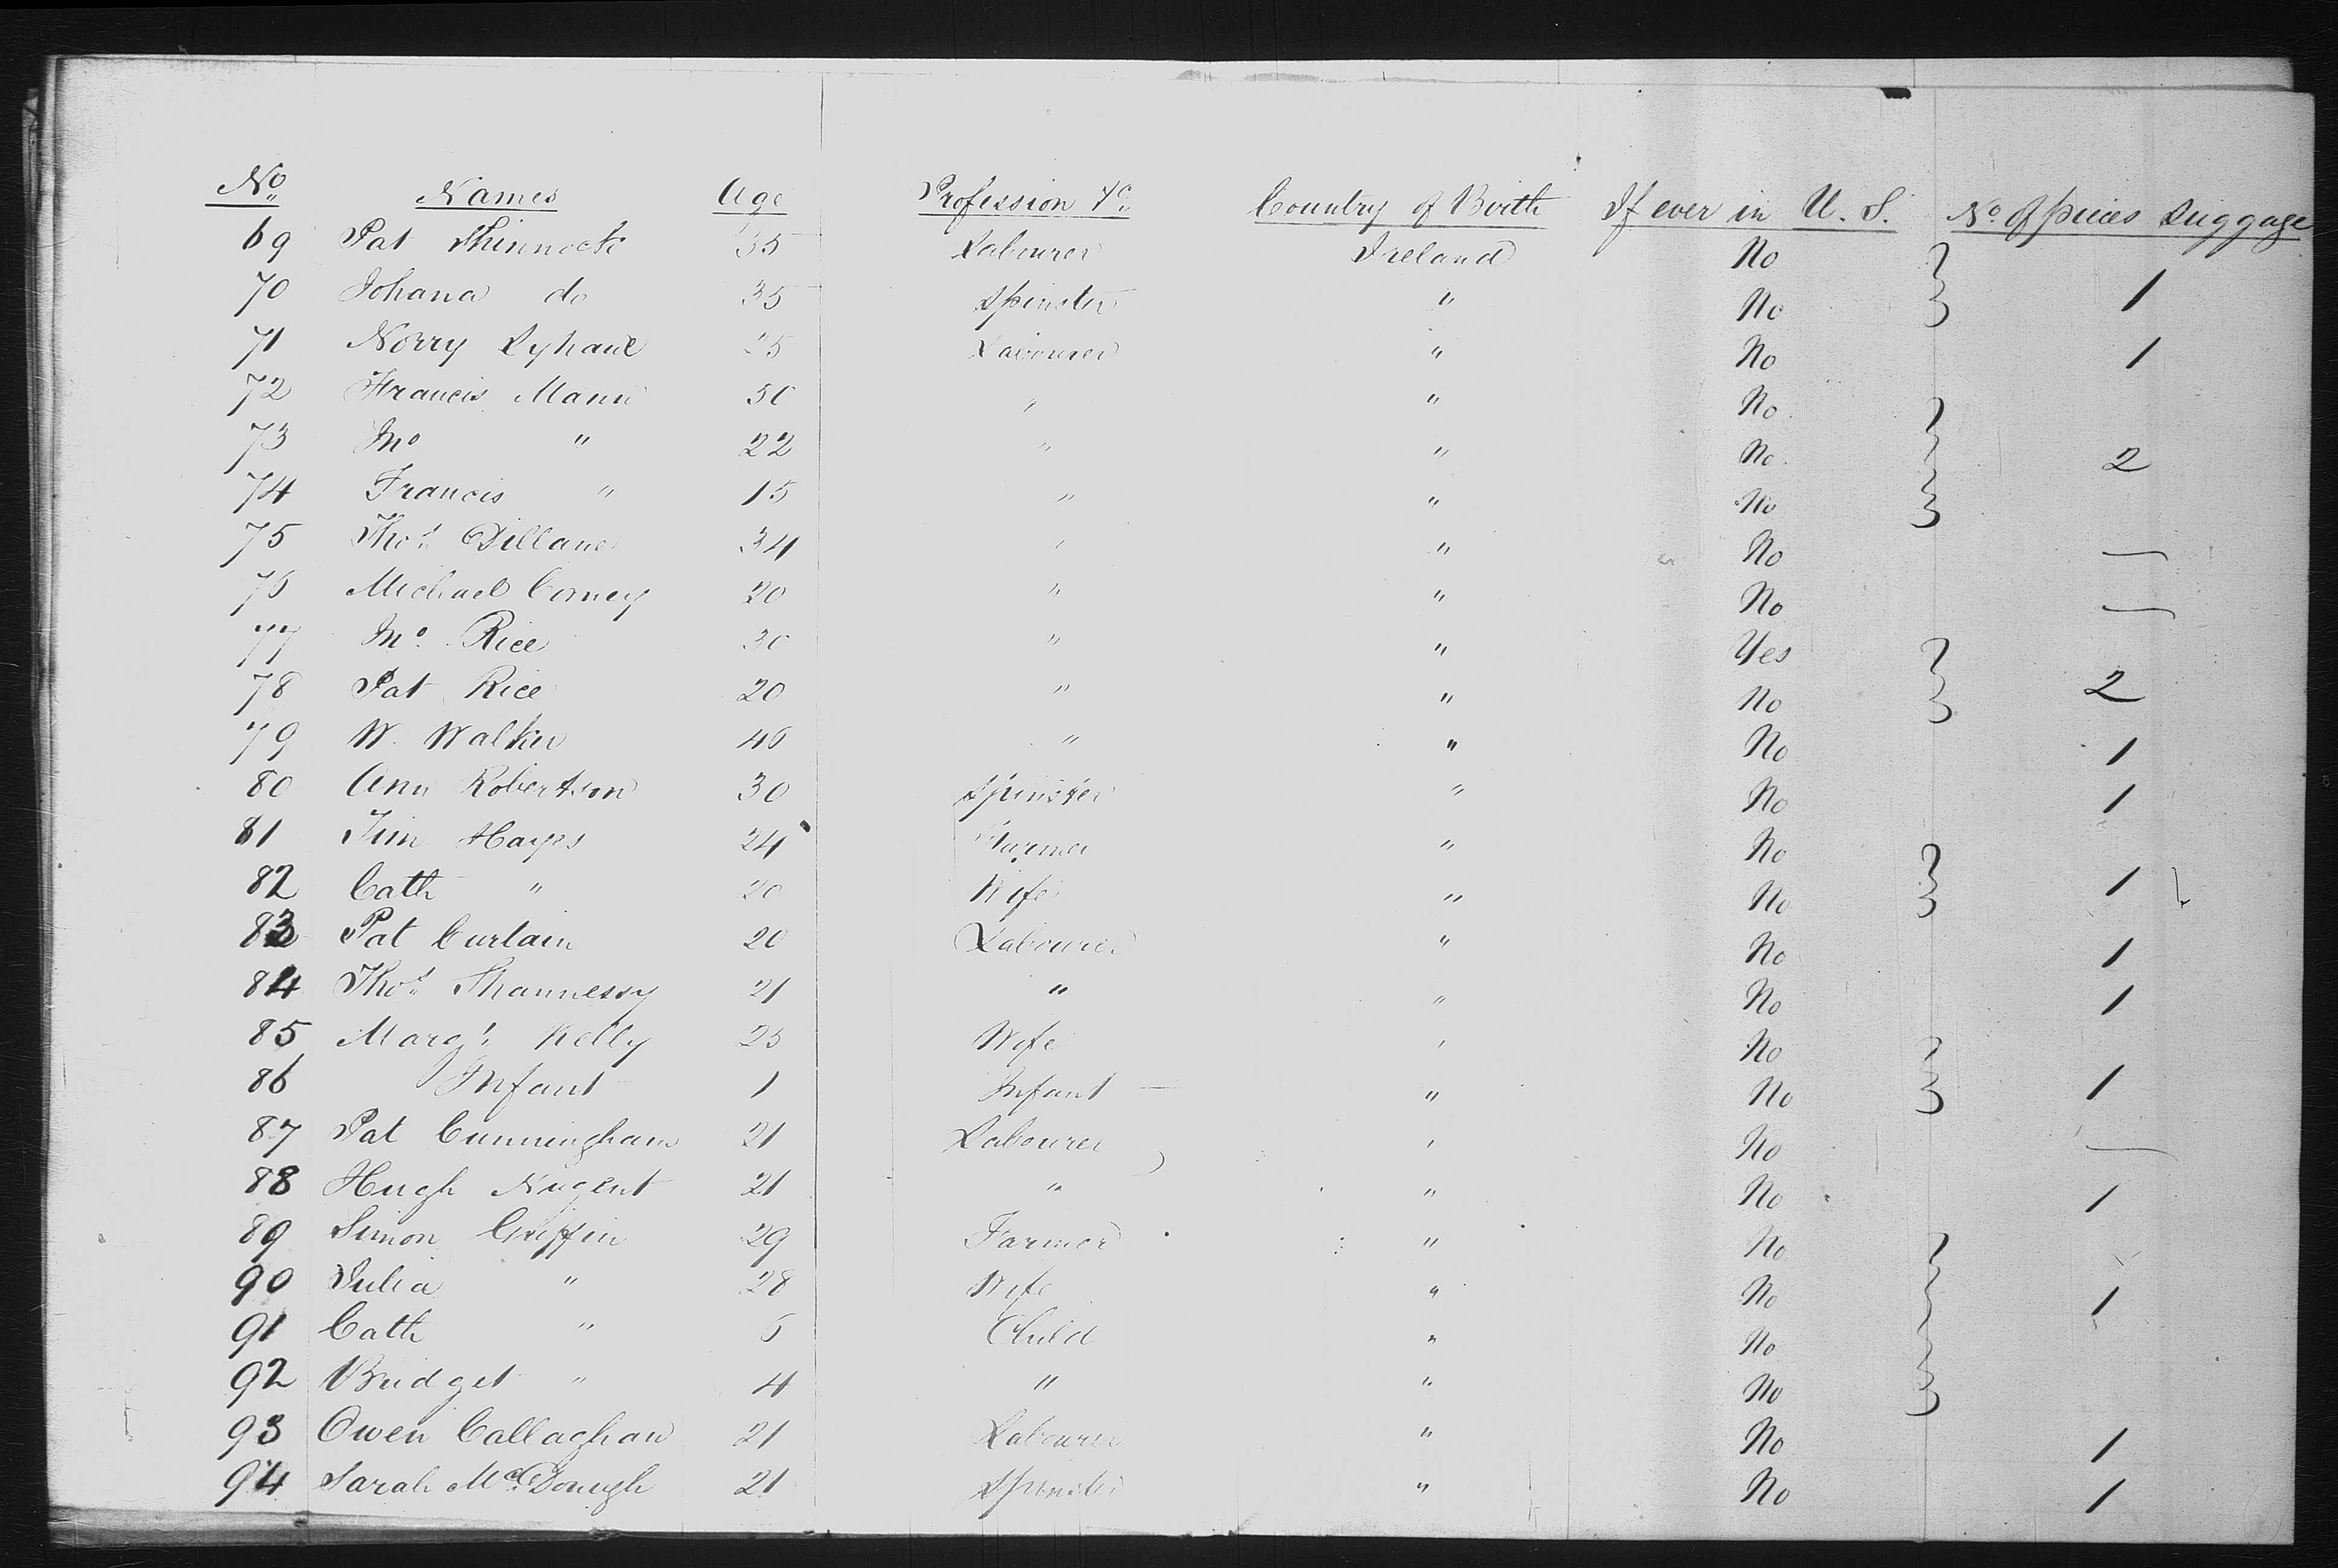 No Names Age Profession &c Country of Birth If ever in U. S. No of pieces Luggage
69 Pat Shinnock 35 Labourer Ireland No
70 Johana do 35 Spinster " No 1
71 Norry Lyhane 25 Labourer " No 1
72 Francis Mann 50 " " No
73 Jno " 22 " " No 2
74 Francis " 15 " " No
75 Thos Dillane 34 " " No —
76 Michael Comey 20 " " No —
77 Jno Rice 30 " " Yes
78 Pat Rice 20 " " No 2
79 W. Walker 46 " " No 1
80 Ann Robertson 30 Spinster " No 1
81 Tim Hayes 24 Farmer " No
82 Cath " 20 Wife " No 1
83 Pat Curtain 20 Labourer " No 1
84 Thos Shannessy 21 " " No 1
85 Margt Kelly 25 Wife " No
86 Infant 1 Infant " No 1
87 Pat Cunningham 21 Labourer " No —
88 Hugh Nugent 21 " " No 1
89 Simon Griffin 29 Farmer " No
90 Julia " 28 Wife " No 1
91 Cath " 6 Child " No
92 Bridget " 4 " " No
93 Owen Callaghan 21 Labourer " No 1
94 Sarah McDonugh 21 Spinster " No 1